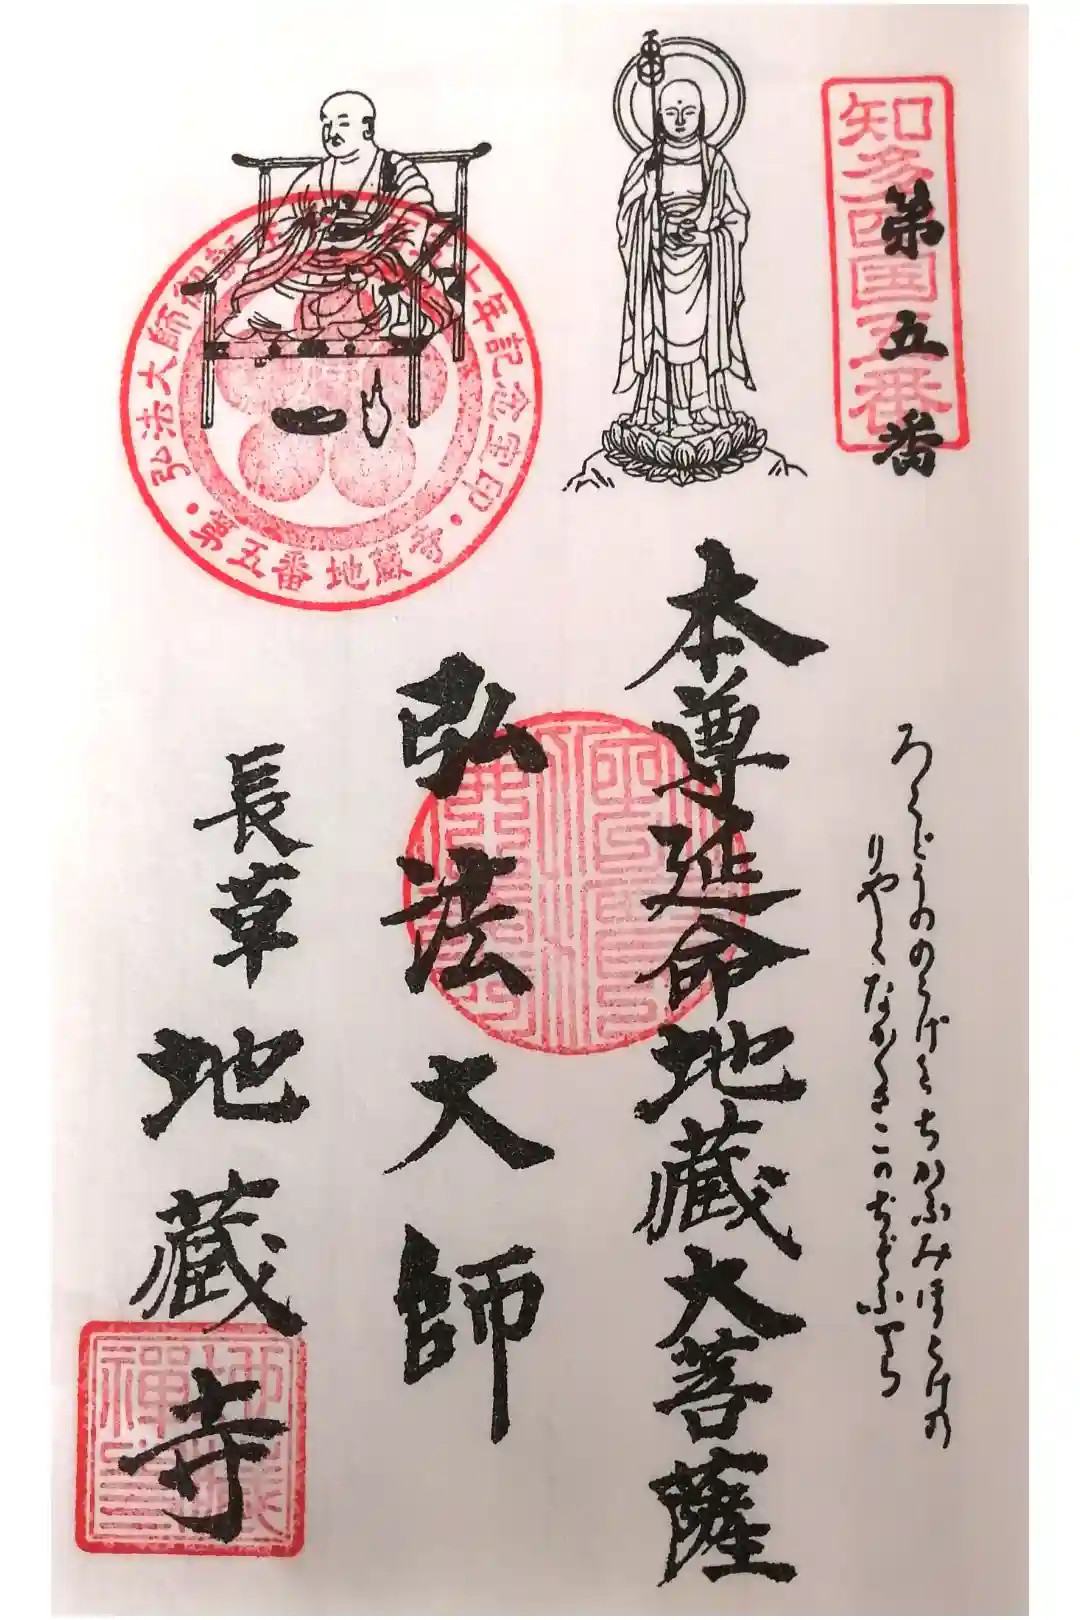 知多四国五番
第五番
ろくどうののうげをちかふみほとけの
りやくなかくさこの
本尊延命地蔵大菩薩
弘法大師
長草
地蔵寺
弘法大師御誕生千二百五十年記念宝印
・第五番 地蔵寺・